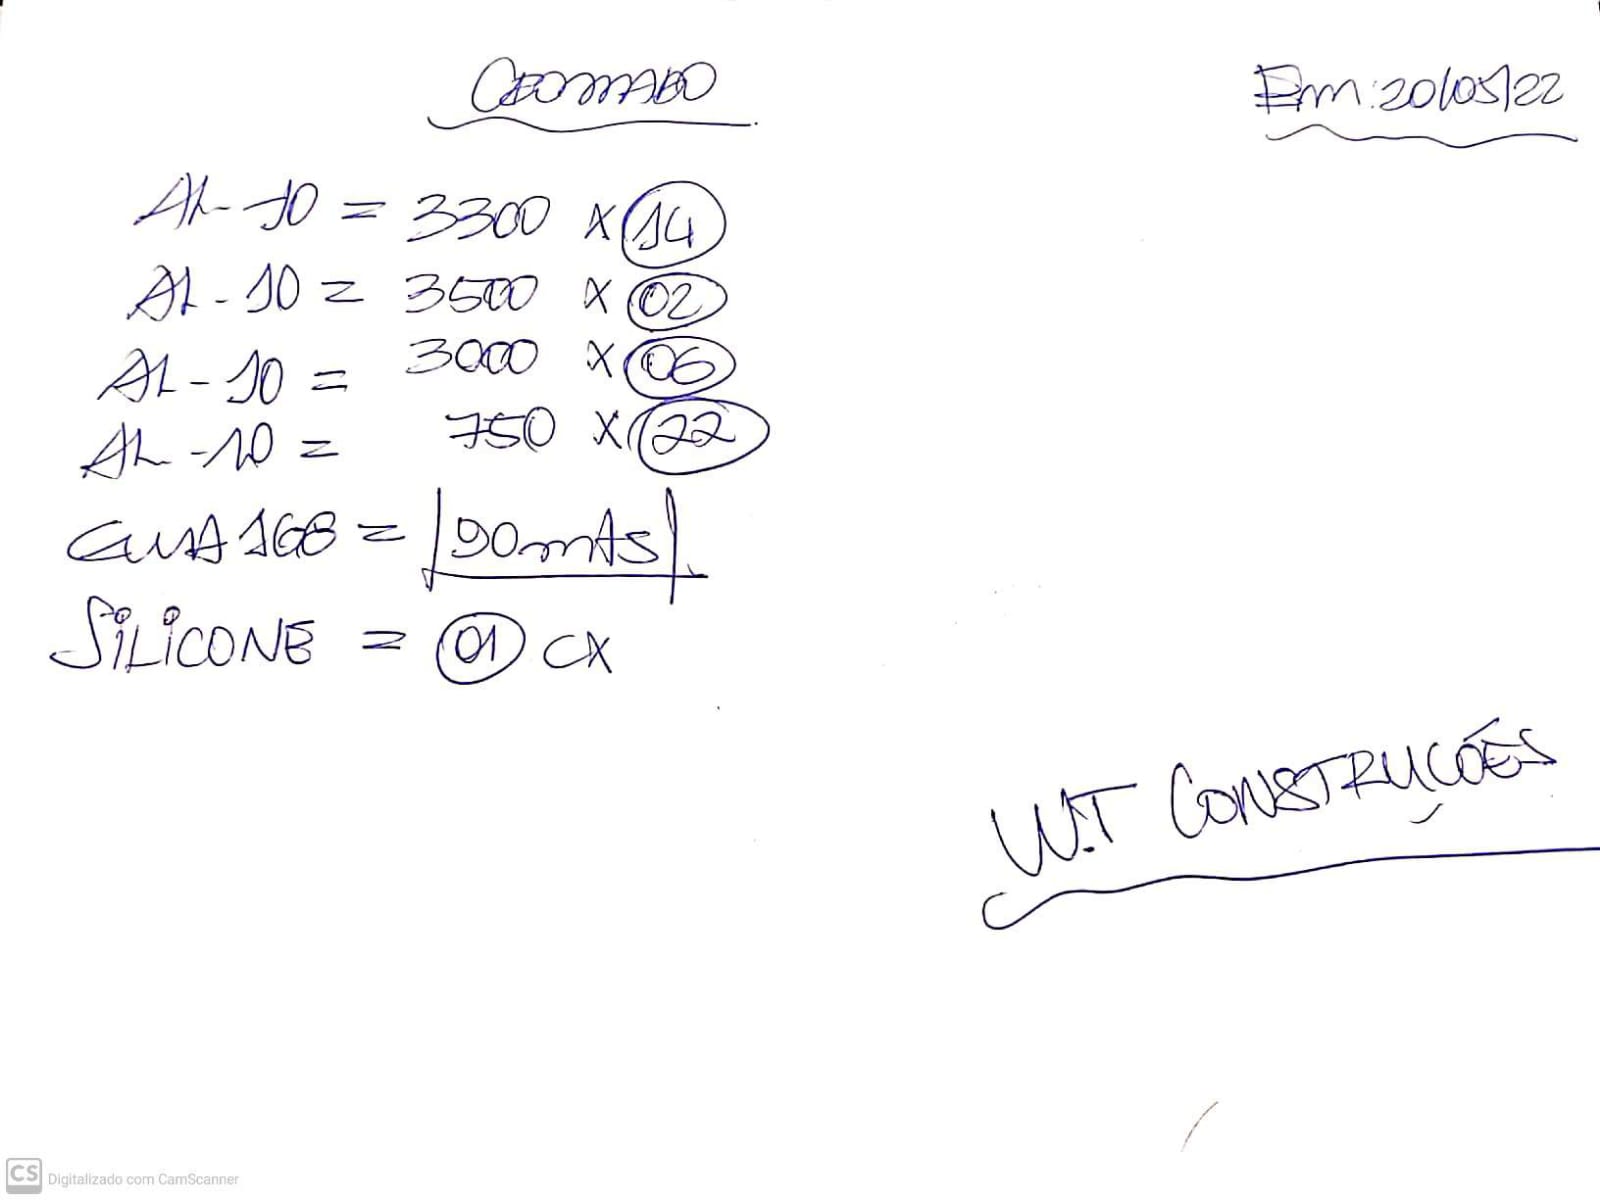 CROMADO
Em: 20/05/22
AL-10 = 3300 X 14
AL-10 = 3500 X 02
AL-10 = 3000 X 06
AL-10 = 750 X 22
168 = 90 mts
SILICONE = 01 CX
W.T CONSTRUÇÕES
CS Digitalizado com CamScanner